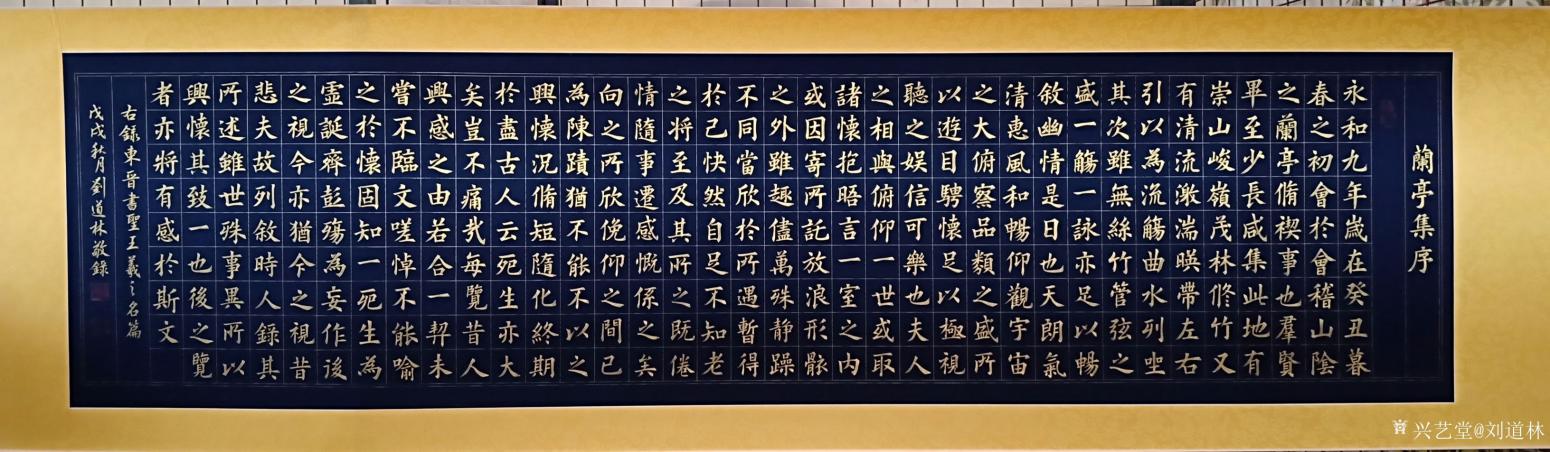 蘭亭集序
永和九年歲在癸丑暮
春之初會於會稽山陰
之蘭亭脩禊事也羣賢
畢至少長咸集此地有
崇山峻嶺茂林修竹又
有清流激湍暎帶左右
引以為流觴曲水列坐
其次雖無絲竹管弦之
盛一觴一詠亦足以暢
敘幽情是日也天朗氣
清惠風和暢仰觀宇宙
之大俯察品類之盛所
以遊目騁懷足以極視
聽之娱信可樂也夫人
之相與俯仰一世或取
諸懷抱晤言一室之内
或因寄所託放浪形骸
之外雖趣儘萬殊静躁
不同當欣於所遇暫得
於己快然自足不知老
之将至及其所之既倦
情隨事遷感慨係之矣
向之所欣俛仰之間已
為陳蹟猶不能不以之
興懷況脩短隨化終期
於盡古人云死生亦大
矣豈不痛哉每覽昔人
興感之由若合一契未
嘗不臨文嗟悼不能喻
之於懷固知一死生為
虛誕齊彭殤為妄作後
之視今亦猶今之視昔
悲夫故列敘時人錄其
所述雖世殊事異所以
興懷其致一也後之覽
者亦將有感於斯文
右錄東晉書聖王羲之名篇
戊戌秋月劉道林敬錄
兴艺堂@刘道林